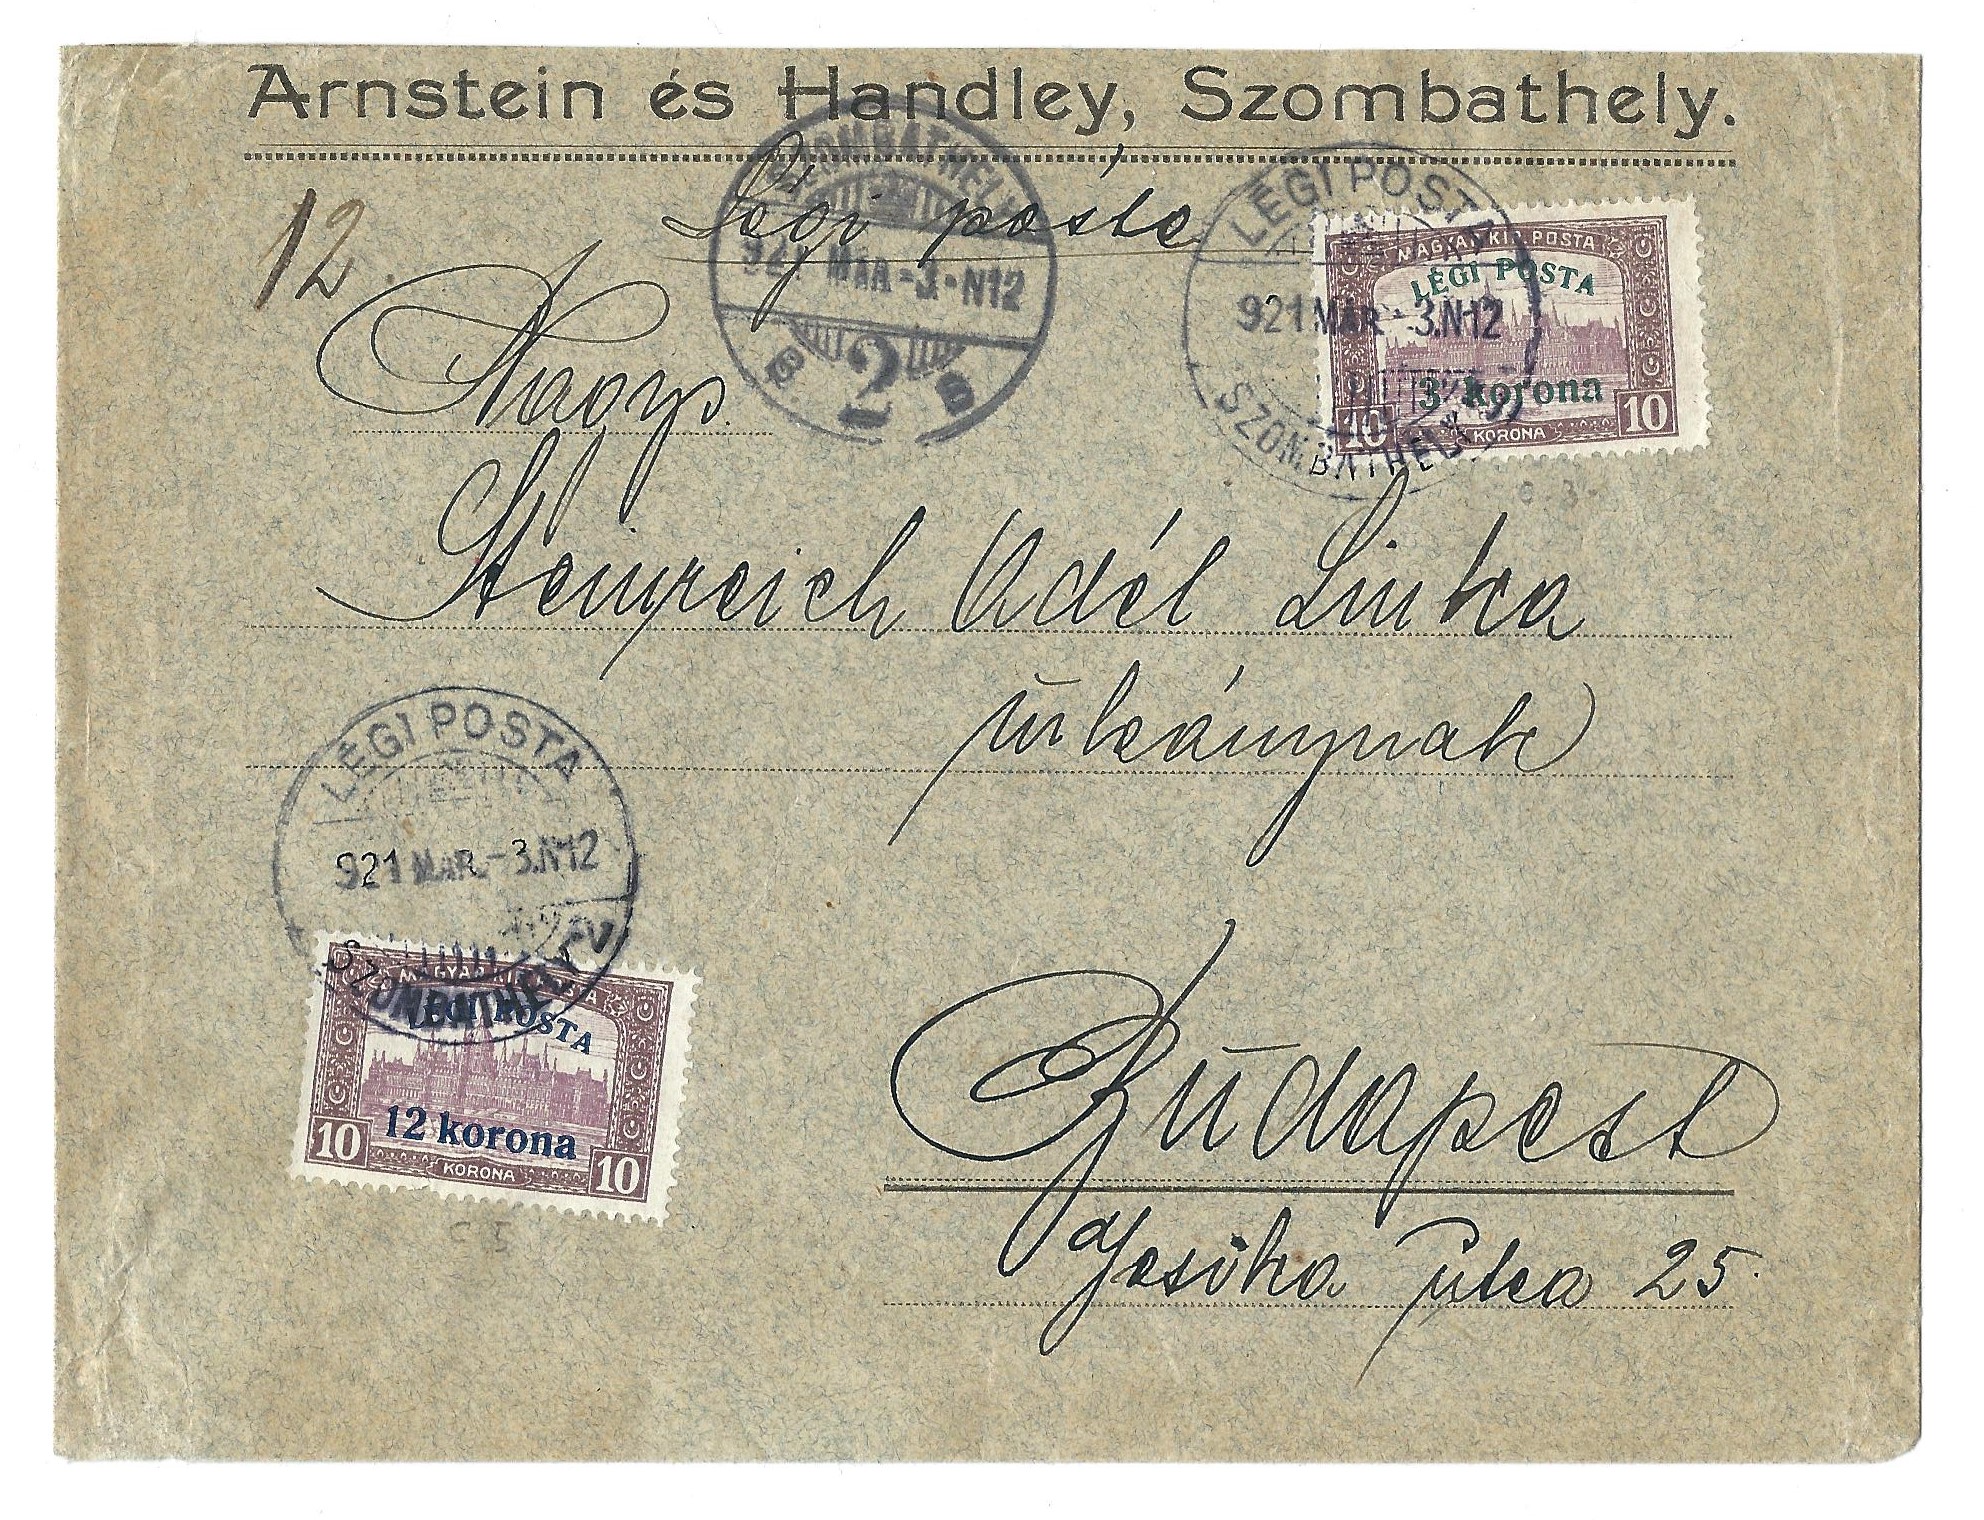 Arnstein és Handley, Szombathely.
Légi posta
12.
SZOMBATHELY
921 MÁR.-3.-N12
B. 2
LÉGI POSTA
921 MÁR.-3.N12
SZOMBATHELY
MAGYAR KIR. POSTA
LÉGI POSTA
3 korona
10 KORONA 10
Nags.
Steinreich Adél Linka
úrleánynak
LÉGI POSTA
921 MÁR.-3.N12
SZOMBATHELY
MAGYAR KIR. POSTA
LÉGI POSTA
12 korona
10 KORONA 10
Budapest
Jósika utca 25.